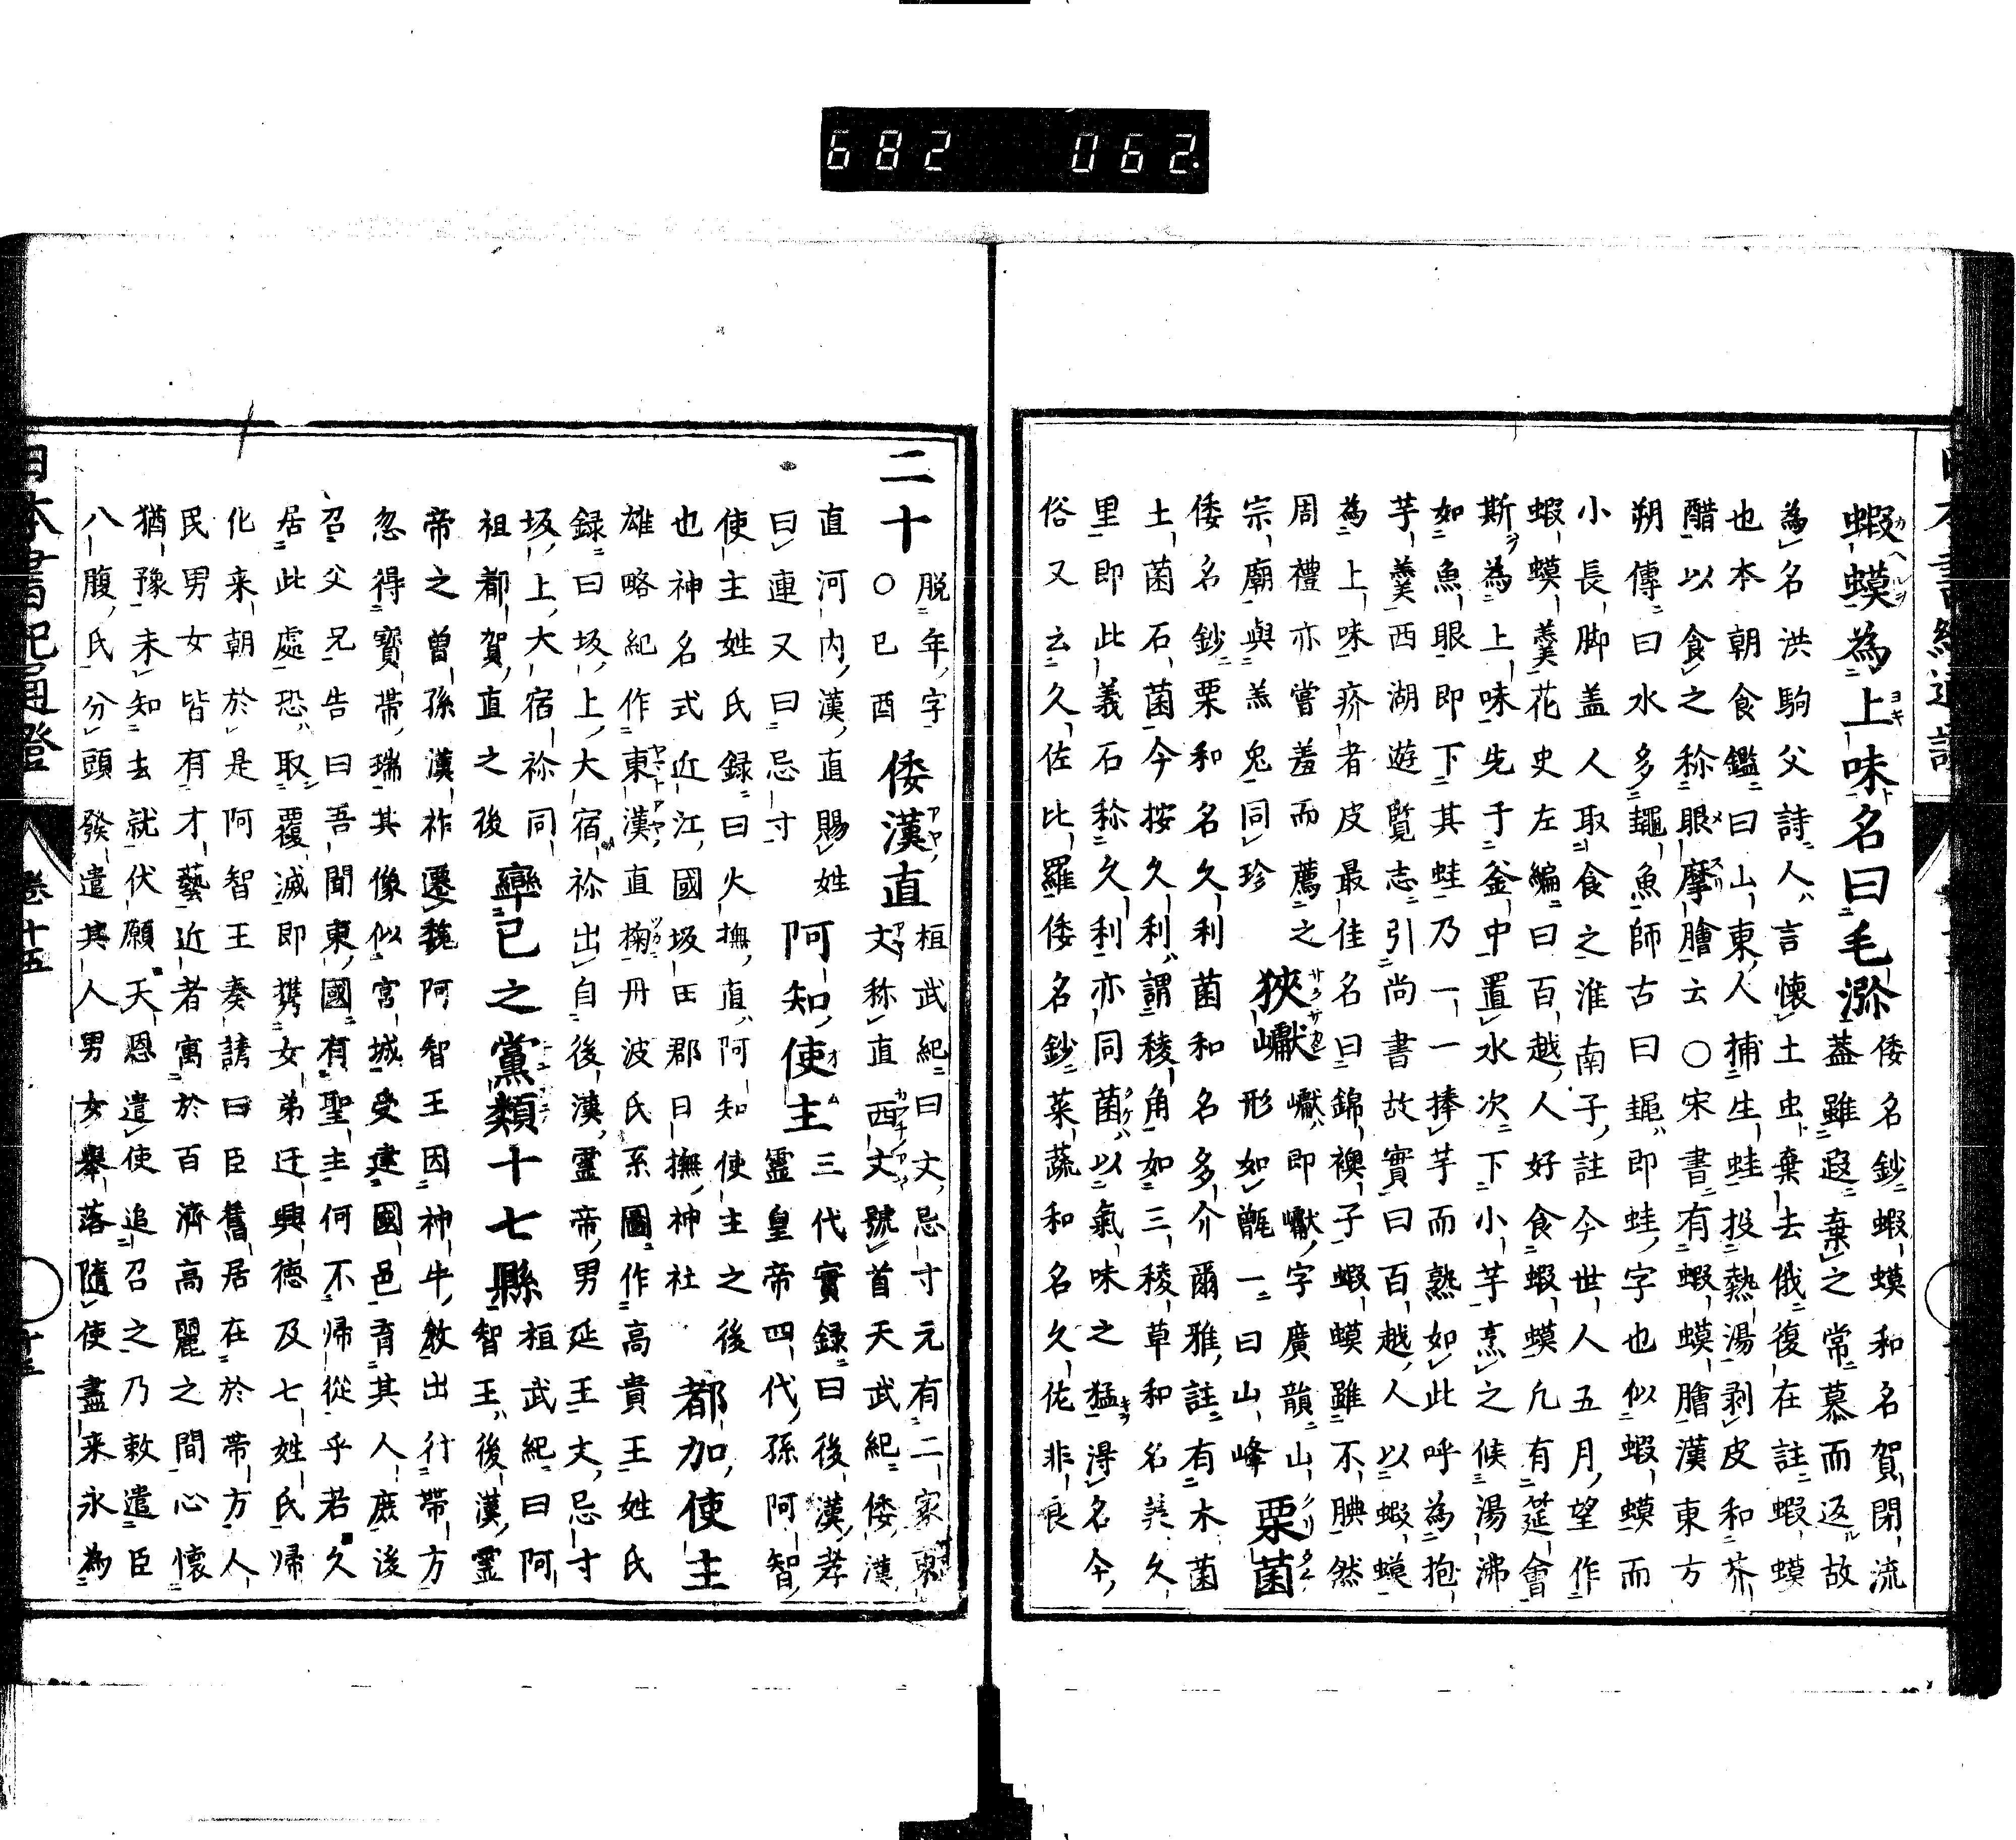 682 062.
蝦蟆為上味名曰毛瀰 倭名鈔蝦蟆和名賀閉流
蓋雖遐棄之常慕而返故
為名洪駒父詩人言懐土虫棄去俄復在註蝦蟆
也本朝食鑑曰山東人捕生蛙投熱湯剥皮和芥
醋以食之称眼摩膾云○宋書有蝦蟆膾漢東方
朔傳曰水多鼃魚師古曰鼃即蛙字也似蝦蟆而
小長脚盖人取食之淮南子註今世人五月望作
蝦蟆羹花史左編曰百越人好食蝦蟆凢有筵會
斯為上味先于釜中置水次下小芋烹之候湯沸
如魚眼即下其蛙乃一一捧芋而熟如此呼為抱
芋羹西湖遊覧志引尚書故實曰百越人以蝦蟆
為上味疥者皮最佳名曰錦襖子蝦蟆雖不腆然
周禮亦嘗羞而薦之 狹巘 巘即巘字廣韻山
宗廟與羔兔同珍 形如甑一曰山峰 栗菌
倭名鈔栗和名久利菌和名多介爾雅註有木菌
土菌石菌今按久利謂稜角如三稜草和名美久
里即此義石称久利亦同菌以氣味之猛得名今
俗又云久佐比羅倭名鈔菜蔬和名久佐非良
脱年字
二十○已酉 倭漢直 桓武紀曰文忌寸元有二家東
文称直西文號首天武紀倭漢
直河内漢直賜姓
曰連又曰忌寸 阿知使主 三代實録曰後漢孝
靈皇帝四代孫阿智
使主姓氏録曰火撫直阿知使主之後
也神名式近江國坂田郡日撫神社 都加使主
雄略紀作東漢直掬丹波氏系圖作高貴王姓氏
録曰坂上大宿祢出自後漢靈帝男延王文忌寸
坂上大宿祢同
祖都賀直之後 率己之黨類十七縣 桓武紀曰阿
智王後漢靈
帝之曾孫漢祚遷魏阿智王因神牛教出行帯方
忽得寳帯瑞其像似宮城受建國邑育其人庶後
召父兄告曰吾聞東國有聖主何不帰從乎若久
居此處恐取覆滅即携女弟迂興徳及七姓氏帰
化来朝於是阿智王奏請曰臣舊居在於帯方人
民男女皆有才藝近者寓於百濟高麗之間心懐
猶豫未知去就伏願天恩遣使追召之乃敕遣臣
八腹氏分頭發遣其人男女擧落隨使盡来永為
日本書紀通證 卷十五